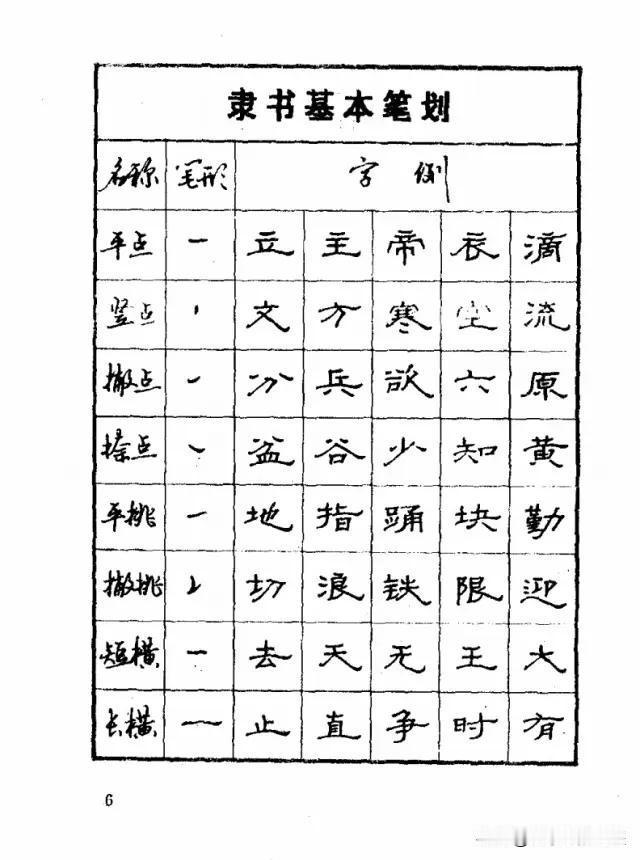 隶书基本笔划
名称 笔形 字例
平点 立 主 帝 衣 滴
竖点 文 方 寒 尘 流
撇点 分 兵 欲 六 原
捺点 盆 谷 少 知 黄
平挑 地 指 踊 块 勤
撇挑 切 浪 铁 限 迎
短横 去 天 无 王 大
长横 止 直 争 时 有
6